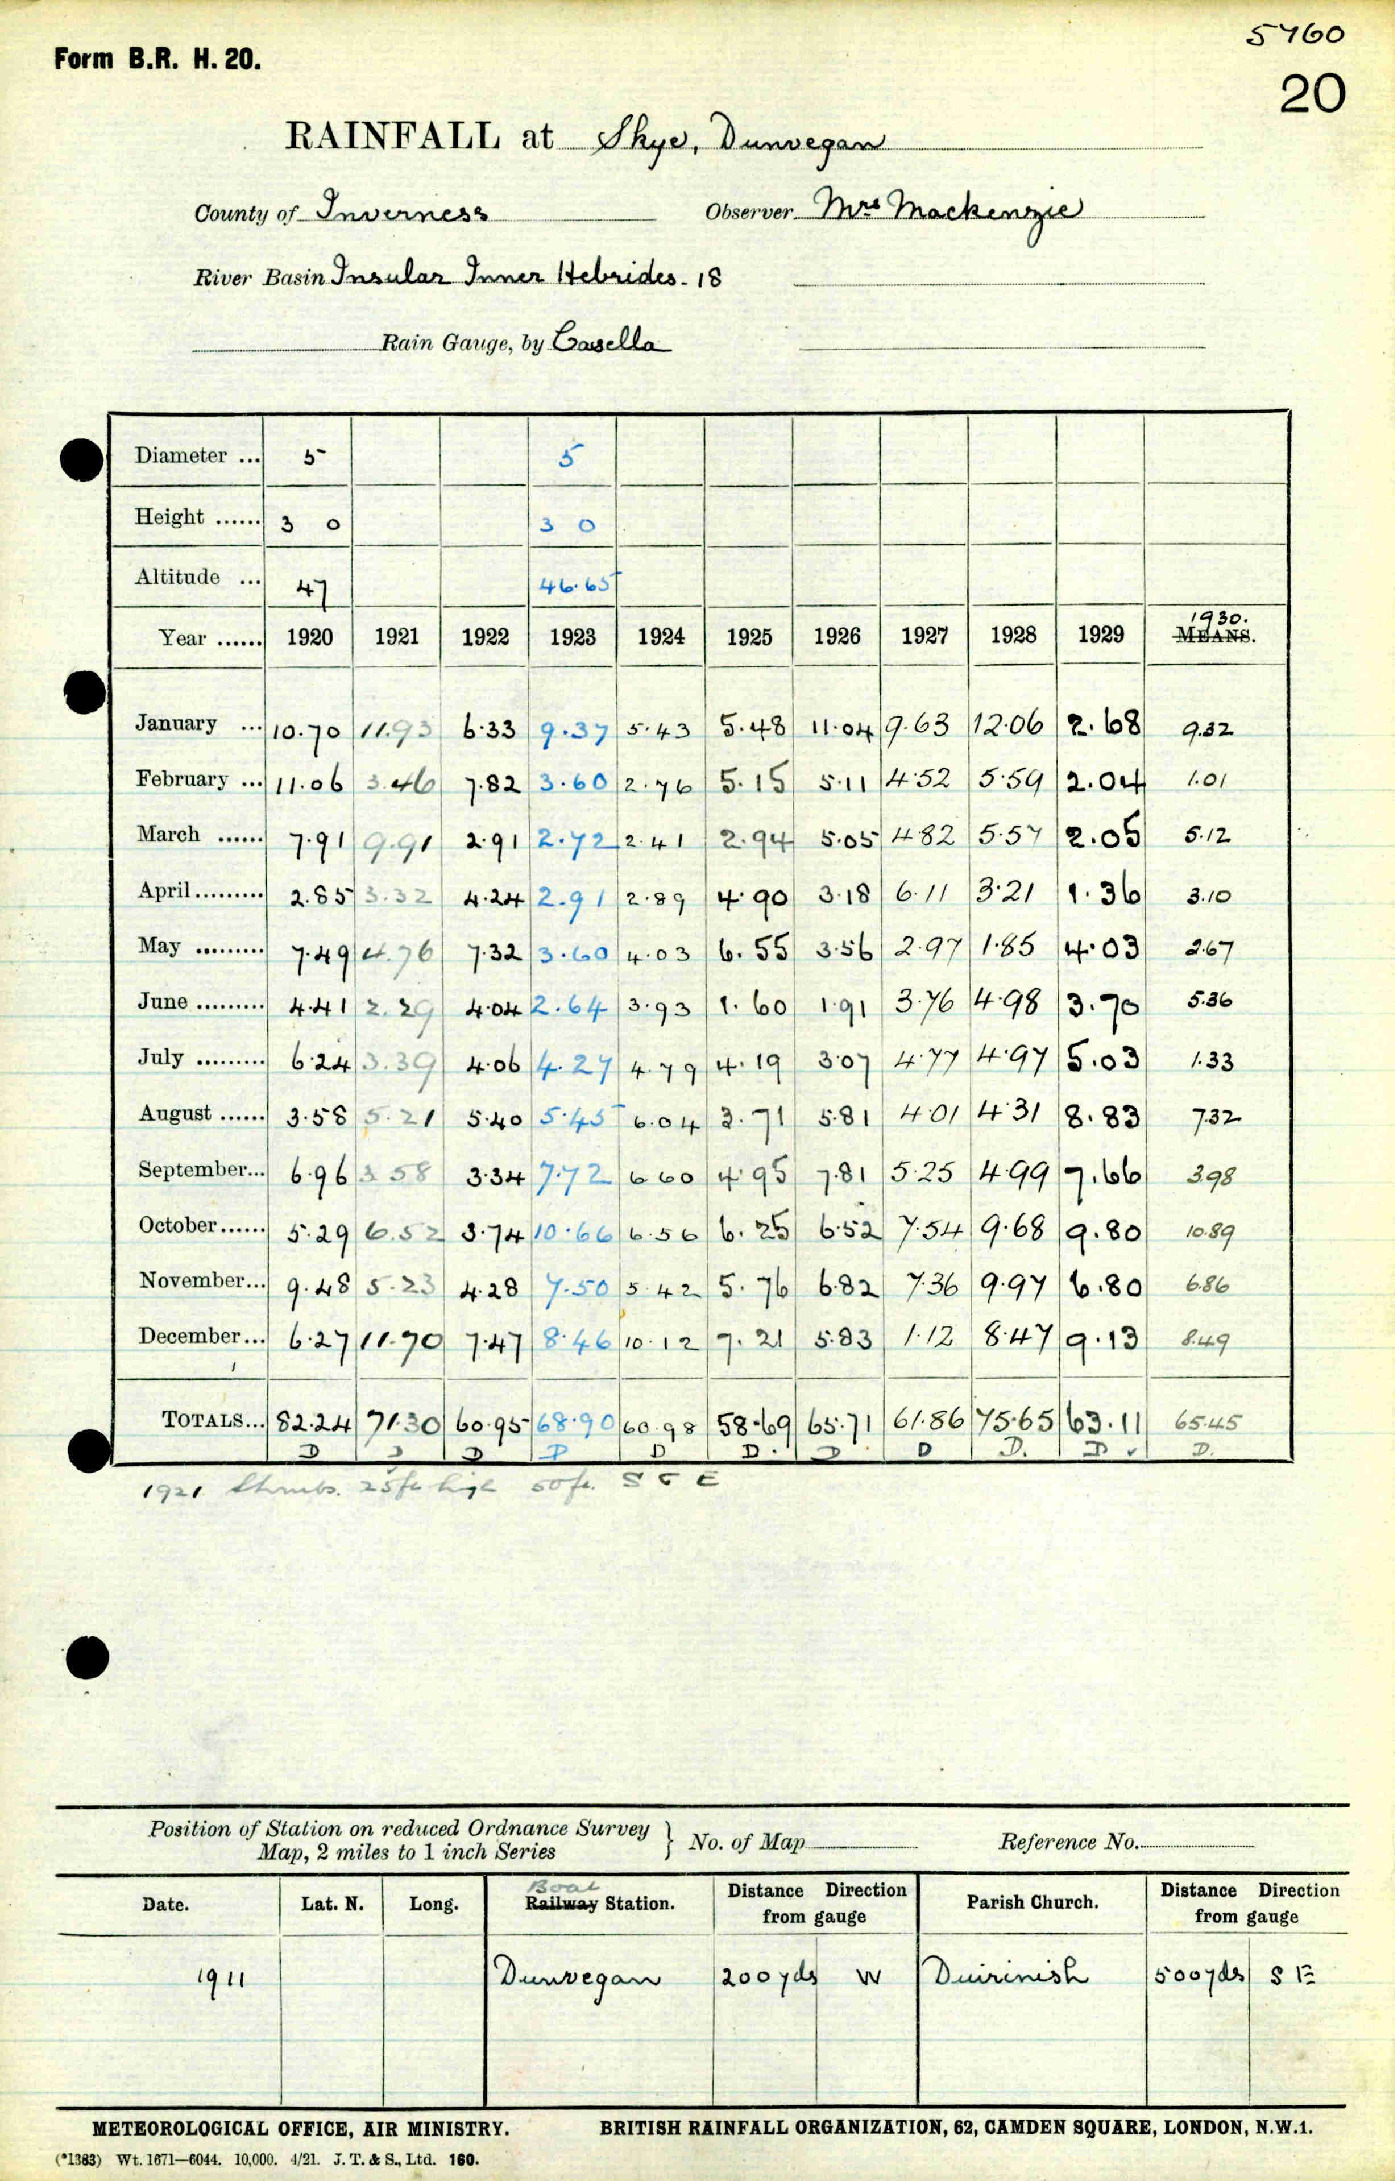 5760
Form B.R. H. 20.
20
RAINFALL at Skye, Dunvegan
County of Inverness Observer Mrs Mackenzie
River Basin Insular Inner Hebrides. 18
Rain Gauge, by Casella
Diameter ... 5 5
Height ...... 3 0 3 0
Altitude ... 47 46.65
1930.
Year ...... 1920 1921 1922 1923 1924 1925 1926 1927 1928 1929 MEANS.
January ... 10.70 11.93 6.33 9.37 5.43 5.48 11.04 9.63 12.06 2.68 9.32
February ... 11.06 3.46 7.82 3.60 2.76 5.15 5.11 4.52 5.59 2.04 1.01
March ...... 7.91 9.91 2.91 2.72 2.41 2.94 5.05 4.82 5.57 2.05 5.12
April......... 2.85 3.32 4.24 2.91 2.89 4.90 3.18 6.11 3.21 1.36 3.10
May ......... 7.49 4.76 7.32 3.60 4.03 6.55 3.56 2.97 1.85 4.03 2.67
June ......... 4.41 2.29 4.04 2.64 3.93 1.60 1.91 3.76 4.98 3.70 5.36
July ......... 6.24 3.39 4.06 4.27 4.79 4.19 3.07 4.77 4.97 5.03 1.33
August ...... 3.58 5.21 5.40 5.45 6.04 3.71 5.81 4.01 4.31 8.83 7.32
September... 6.96 3.58 3.34 7.72 6.60 4.95 7.81 5.25 4.99 7.66 3.98
October...... 5.29 6.52 3.74 10.66 6.56 6.25 6.52 7.54 9.68 9.80 10.89
November... 9.48 5.23 4.28 7.50 5.42 5.76 6.82 7.36 9.97 6.80 6.86
December... 6.27 11.70 7.47 8.46 10.12 7.21 5.83 1.12 8.47 9.13 8.49
TOTALS... 82.24 71.30 60.95 68.90 60.98 58.69 65.71 61.86 75.65 63.11 65.45
D D D D D D. D D D. D ✓ D.
1921 Shrubs. 25ft high 50ft. S & E
Position of Station on reduced Ordnance Survey
Map, 2 miles to 1 inch Series } No. of Map Reference No.
Boat
Date. Lat. N. Long. Railway Station. Distance Direction from gauge Parish Church. Distance Direction from gauge
1911 Dunvegan 200 yds W Duirinish 500 yds S E
METEOROLOGICAL OFFICE, AIR MINISTRY. BRITISH RAINFALL ORGANIZATION, 62, CAMDEN SQUARE, LONDON, N.W.1.
(*1383) Wt. 1671—6044. 10,000. 4/21. J. T. & S., Ltd. 160.